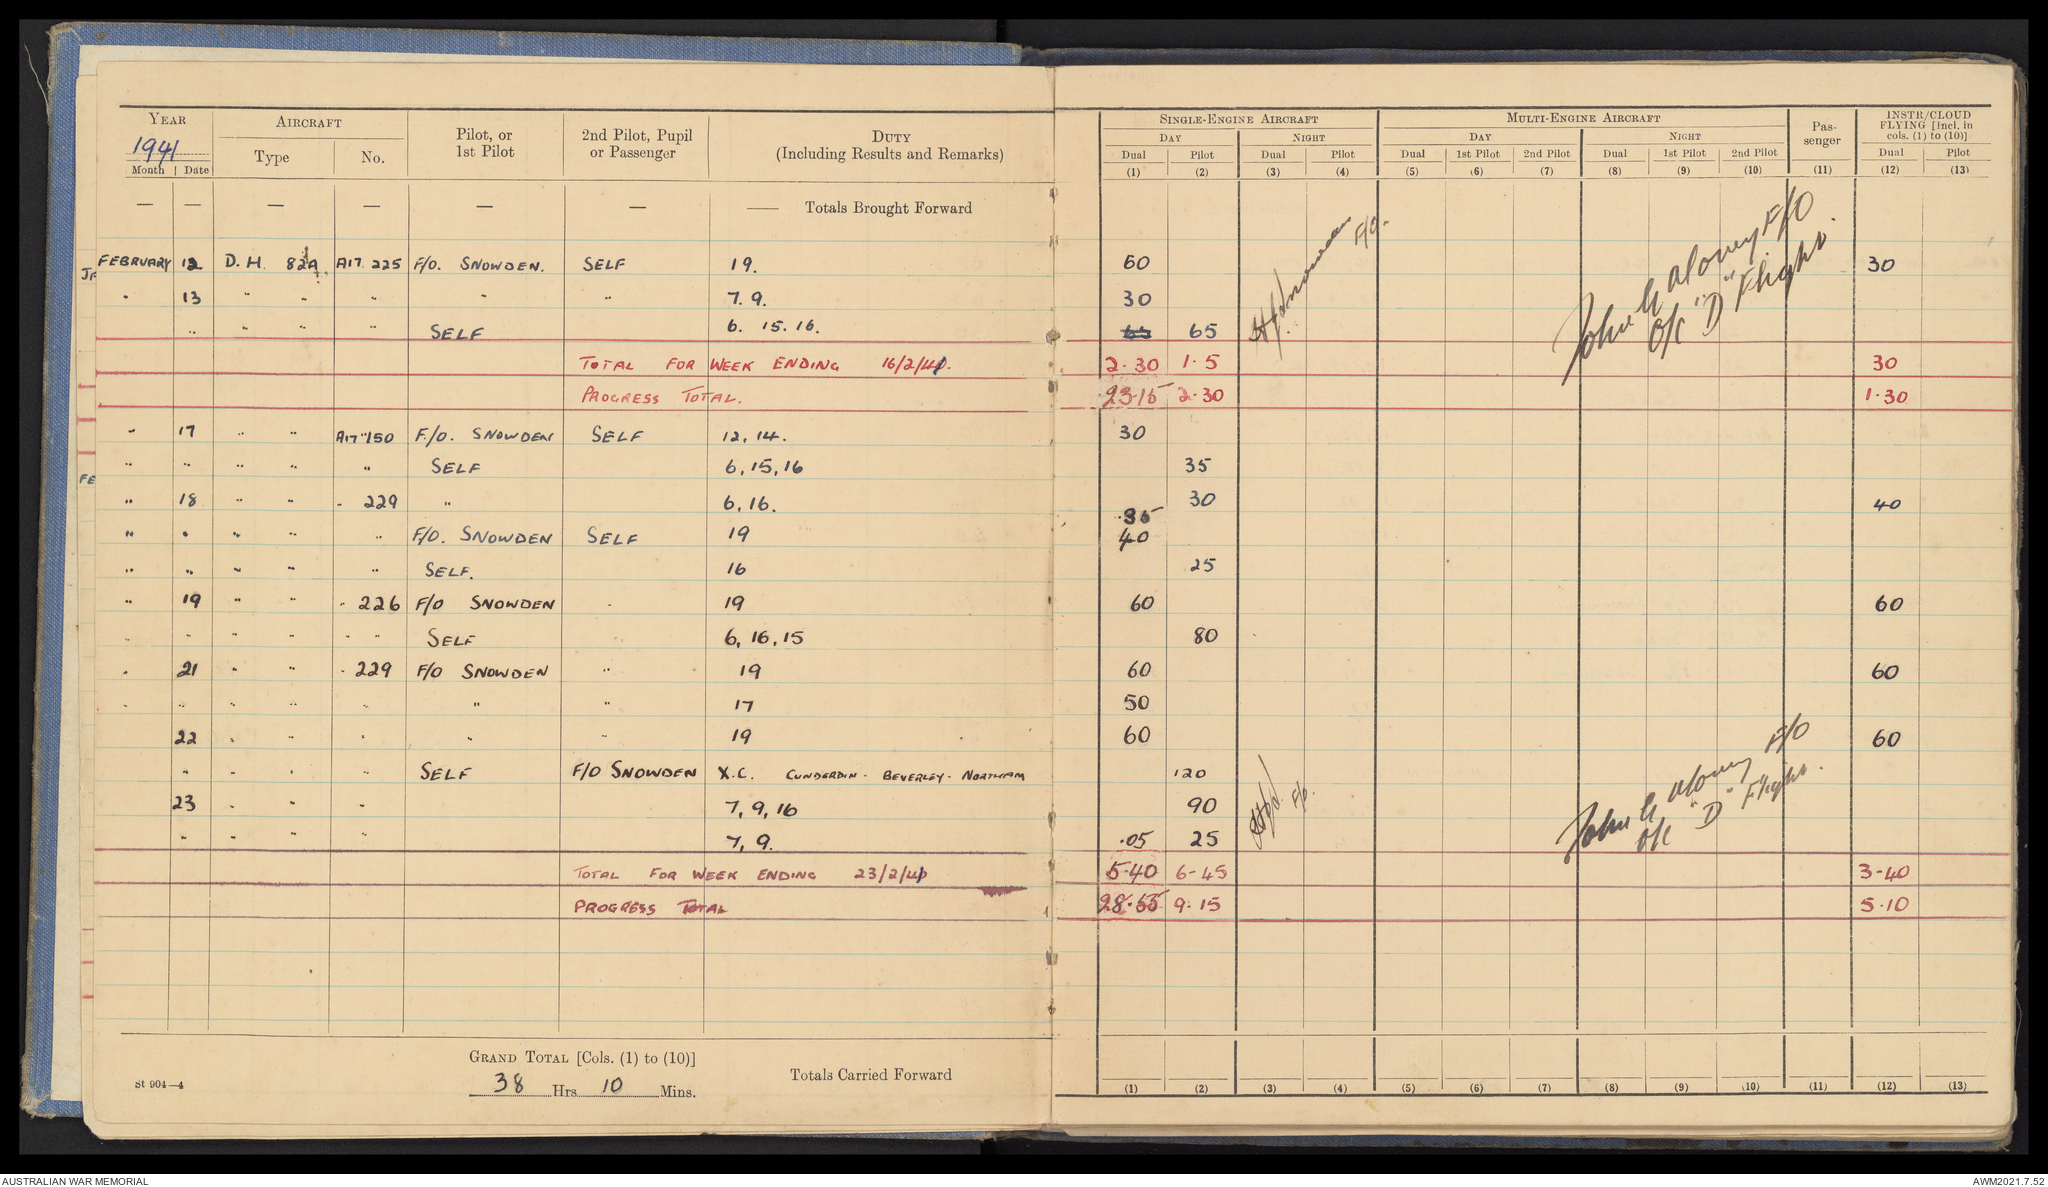 YEAR AIRCRAFT Pilot, or 1st Pilot 2nd Pilot, Pupil or Passenger DUTY (Including Results and Remarks) SINGLE-ENGINE AIRCRAFT MULTI-ENGINE AIRCRAFT Pas- senger INSTR/CLOUD FLYING [Incl. in cols. (1) to (10)]
1941 Type No. DAY NIGHT DAY NIGHT
Month Date Dual Pilot Dual Pilot Dual 1st Pilot 2nd Pilot Dual 1st Pilot 2nd Pilot Dual Pilot
(1) (2) (3) (4) (5) (6) (7) (8) (9) (10) (11) (12) (13)
— — — — — — — Totals Brought Forward
JA
FEBRUARY 12 D.H. 82A A17 225 F/O. SNOWDEN. SELF 19. 60 F/O. John G Maloney F/O 30
" 13 " " " " " 7. 9. 30 O/C "D" Flight.
" " " " SELF 6. 15. 16. 65 65
TOTAL FOR WEEK ENDING 16/2/41. 2.30 1.5 30
PROGRESS TOTAL. 23.15 2.30 1.30
" 17 " " A17 "150 F/O. SNOWDEN SELF 12, 14. 30
" " " " " SELF 6, 15, 16 35
FE
" 18 " " " 229 " 6, 16. 30 40
.35
" " " " " F/O. SNOWDEN SELF 19 40
" " " " " SELF. 16 25
" 19 " " " 226 F/O SNOWDEN " 19 60 60
" " " " " " SELF 6, 16, 15 80
" 21 " " " 229 F/O SNOWDEN " 19 60 60
" " " " " " " 17 50
22 " " " " " 19 60 60
" " " " SELF F/O SNOWDEN X.C. CUNDERDIN - BEVERLEY - NORTHAM 120 John G Maloney F/O
23 " " " 7, 9, 16 90 F/O. O/C "D" Flight.
" " " " 7, 9. .05 25
TOTAL FOR WEEK ENDING 23/2/41 5.40 6-45 3-40
PROGRESS TOTAL 28.55 9.15 5.10
GRAND TOTAL [Cols. (1) to (10)]
38 Hrs 10 Mins. Totals Carried Forward
St 904—4 (1) (2) (3) (4) (5) (6) (7) (8) (9) (10) (11) (12) (13)
AUSTRALIAN WAR MEMORIAL AWM2021.7.52